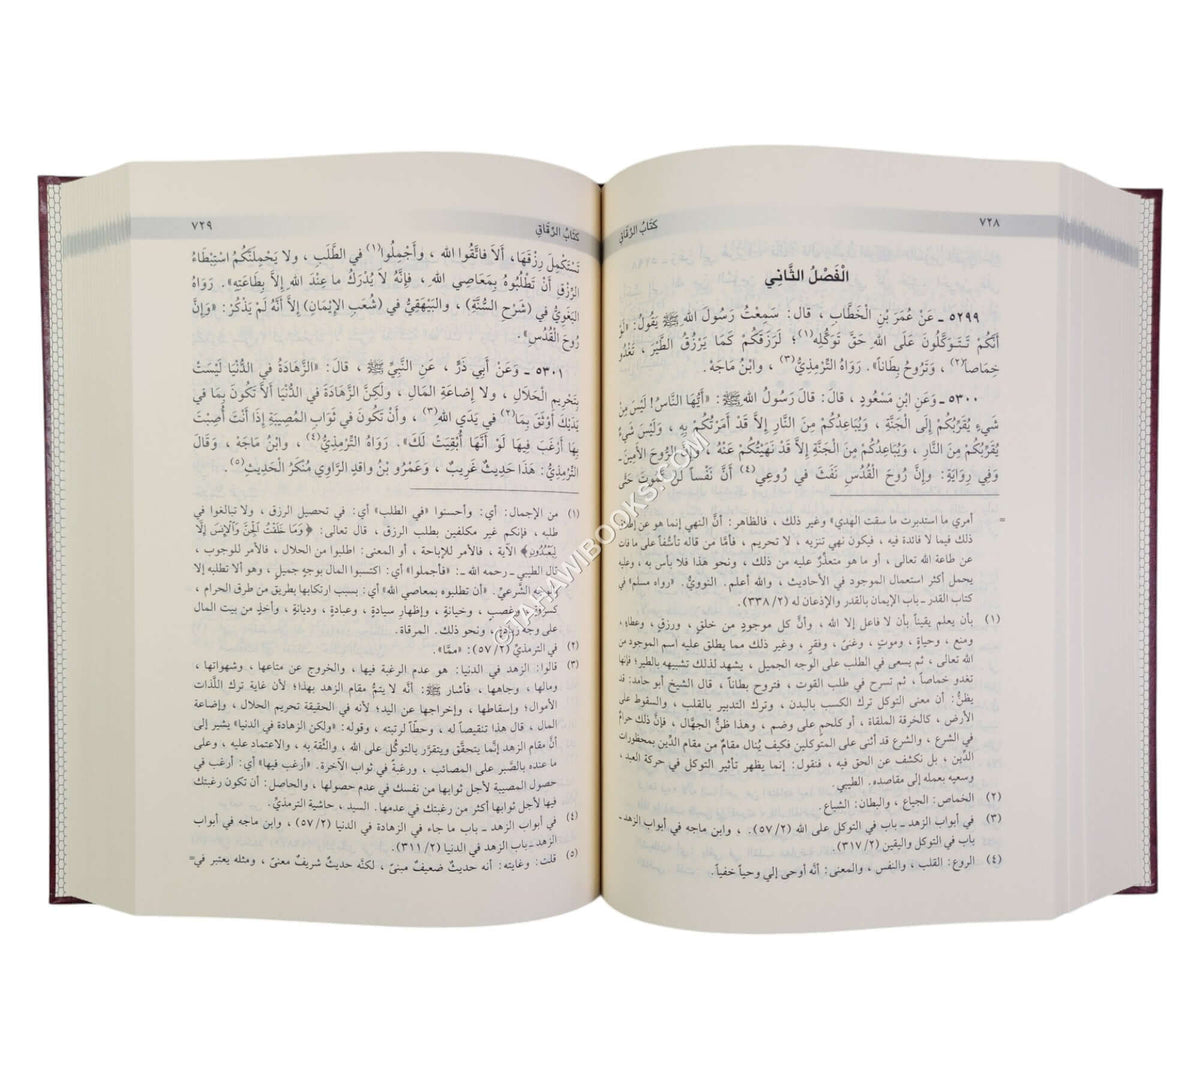 ٧٢٨
كتَابُ الرِّقَاقِ
الْفَصْلُ الثَّانِي
٥٢٩٩ ـ عَنْ عُمَرَ بْنِ الْخَطَّابِ ، قال: سَمِعْتُ رَسُولَ اللهِ ﷺ يَقُولُ: «لَوْ
أَنَّكُم تَتَوَكَّلُونَ عَلَى اللهِ حَقَّ تَوَكُّلِهِ(١)؛ لَرَزَقَكُمْ كَمَا يَرْزُقُ الطَّيْرَ ، تَغْدُو
خِمَاصاً(٢) ، وَتَرُوحُ بِطَاناً». رَوَاهُ التِّرْمِذِيُّ(٣) ، وابْنُ مَاجَهْ.
٥٣٠٠ ـ وَعَنِ ابْنِ مَسْعُودٍ ، قالَ: قالَ رَسُولُ اللهِ ﷺ: «أَيُّهَا النَّاسُ! لَيْسَ مِنْ
شَيْءٍ يُقَرِّبُكُمْ إِلَى الْجَنَّةِ ، وَيُبَاعِدُكُمْ مِنَ النَّارِ إِلَّا قَدْ أَمَرْتُكُمْ بِهِ ، وَلَيْسَ شَيْءٌ
يُقَرِّبُكُمْ مِنَ النَّارِ ، وَيُبَاعِدُكُمْ مِنَ الْجَنَّةِ إِلَّا قَدْ نَهَيْتُكُمْ عَنْهُ ، وإِنَّ الرُّوحَ الأَمِينَ ـ
وَفِي رِوَايَةٍ: وَإِنَّ رُوحَ الْقُدُسِ نَفَثَ في رُوعِي(٤) أَنَّ نَفْساً لَنْ تَمُوتَ حَتَّى
= أمري ما استدبرت ما سقت الهدي» وغير ذلك ، فالظاهر: أنَّ النهي إنما هو عن إطلاق
ذلك فيما لا فائدة فيه ، فيكون نهي تنزيه ، لا تحريم ، فأمَّا من قاله تأسُّفاً على ما فات
عن طاعة الله تعالى ، أو ما هو متعذِّر عليه من ذلك ، ونحو هذا فلا بأس به، وعليه
يحمل أكثر استعمال الموجود في الأحاديث ، والله أعلم. النوويُّ. «رواه مسلم» في
كتاب القدر ـ باب الإيمان بالقدر والإذعان له (٢/ ٣٣٨).
(١) بأن يعلم يقيناً بأن لا فاعل إلا الله ، وأنَّ كل موجود من خلقٍ، ورزقٍ، وعطاءٍ،
ومنع ، وحياةٍ ، وموتٍ ، وغنىً، وفقرٍ، وغير ذلك مما يطلق عليه اسم الموجود من
الله تعالى ، ثم يسعى في الطلب على الوجه الجميل ، يشهد لذلك تشبيهه بالطير؛ فإنها
تغدو خماصاً ، ثم تسرح في طلب القوت ، فتروح بطاناً ، قال الشيخ أبو حامد: قد
يظنُّ: أن معنى التوكل ترك الكسب بالبدن ، وترك التدبير بالقلب ، والسقوط على
الأرض ، كالخرقة الملقاة ، أو كلحمٍ على وضم ، وهذا ظنُّ الجهَّال ، فإنَّ ذلك حرامٌ
في الشرع ، والشرع قد أثنى على المتوكلين فكيف يُنال مقامٌ من مقام الدِّين بمحظورات
الدِّين ، بل نكشف عن الحق فيه ، فنقول: إنما يظهر تأثير التوكل في حركة العبد ،
وسعيه بعمله إلى مقاصده. الطيبي.
(٢) الخماص: الجياع ، والبطان: الشباع.
(٣) في أبواب الزهد ـ باب في التوكل على الله (٢/ ٥٧) ، وابن ماجه في أبواب الزهد ـ
باب في التوكل واليقين (٢/ ٣١٧).
(٤) الروع: القلب ، والنفس ، والمعنى: أنَّه أوحى إلي وحياً خفياً.
كتَابُ الرِّقَاقِ
٧٢٩
تَسْتَكْمِلَ رِزْقَهَا، أَلاَ فاتَّقُوا اللهَ ، وَأَجْمِلُوا(١) في الطَّلَبِ ، ولا يَحْمِلَنَّكُمُ اسْتِبْطَاءُ
الرِّزْقِ أَنْ تَطْلُبُوهُ بِمَعَاصِي اللهِ ، فَإِنَّهُ لاَ يُدْرَكُ ما عِنْدَ اللهِ إِلاَّ بِطَاعَتِهِ». رَوَاهُ
البَغَوِيُّ في (شَرْحِ السُّنَّةِ) ، والبَيْهَقِيُّ في (شُعَبِ الإِيْمَانِ) إِلَّا أَنَّهُ لَمْ يَذْكُرْ: «وَإِنَّ
رُوحَ الْقُدُسِ».
٥٣٠١ ـ وَعَنْ أَبِي ذَرٍّ ، عَنِ النَّبِيِّ ﷺ ، قالَ: «الزَّهَادَةُ في الدُّنْيَا لَيْسَتْ
بِتَحْرِيمِ الْحَلَالِ ، ولا إِضَاعَةِ المَالِ ، ولَكِنَّ الزَّهَادَةَ في الدُّنْيَا أَلاَّ تَكُونَ بِمَا في
يَدَيْكَ أَوْثَقَ بِمَا(٢) في يَدَيِ اللهِ(٣) ، وأَنْ تَكُونَ في ثَوَابِ المُصِيبَةِ إِذَا أَنْتَ أُصِبْتَ
بِهَا أَرْغَبَ فِيهَا لَوْ أَنَّهَا أُبْقِيَتْ لَكَ». رَوَاهُ التِّرْمِذِيُّ(٤) ، وابْنُ مَاجَهْ ، وَقَالَ
التِّرْمِذِيُّ: هَذَا حَدِيثٌ غَرِيبٌ ، وَعَمْرُو بْنُ واقِدٍ الرَّاوِي مُنْكَرُ الْحَدِيثِ(٥).
(١) من الإجمال: أي: وأحسنوا «في الطلب» أي: في تحصيل الرزق ، ولا تبالغوا في
طلبه ، فإنكم غير مكلفين بطلب الرزق ، قال تعالى: ﴿ وَمَا خَلَقْتُ الْجِنَّ وَالْإِنسَ إِلَّا
لِيَعْبُدُونِ﴾ الآية ، فالأمر للإباحة ، أو المعنى: اطلبوا من الحلال ، فالأمر للوجوب ،
قال الطيبي ـ رحمه الله ـ: «فأجملوا» أي: اكتسبوا المال بوجهٍ جميلٍ ، وهو ألا تطلبه إلا
بالوجه الشرعيِّ. «أن تطلبوه بمعاصي الله» أي: بسبب ارتكابها بطريق من طرق الحرام ،
كسرقةٍ ، وغصبٍ ، وخيانةٍ ، وإظهار سيادةٍ ، وعبادةٍ ، وديانةٍ ، وأخذٍ من بيت المال
على وجه زيادةٍ ، ونحو ذلك. المرقاة.
(٢) في الترمذيِّ (٢/ ٥٧): «ممَّا».
(٣) قالوا: الزهد في الدنيا: هو عدم الرغبة فيها، والخروج عن متاعها ، وشهواتها ،
ومالها ، وجاهها ، فأشار ﷺ: أنَّه لا يتمُّ مقام الزهد بهذا؛ لأن غاية ترك اللَّذات
الأموال؛ وإسقاطها ، وإخراجها عن اليد؛ لأنه في الحقيقة تحريم الحلال ، وإضاعة
المال ، قال هذا تنقيصاً له ، وحطَّاً لرتبته ، وقوله: «ولكن الزهادة في الدنيا» يشير إلى
أنَّ مقام الزهد إنَّما يتحقَّق ويتقرَّر بالتوكُّل على الله ، والثِّقة به ، والاعتماد عليه ، وعلى
ما عنده بالصَّبر على المصائب ، ورغبةً في ثواب الآخرة. «أرغب فيها» أي: أرغب في
حصول المصيبة لأجل ثوابها من نفسك في عدم حصولها ، والحاصل: أن تكون رغبتك
فيها لأجل ثوابها أكثر من رغبتك في عدمها. السيد ، حاشية الترمذيِّ.
(٤) في أبواب الزهد ـ باب ما جاء في الزهادة في الدنيا (٢/ ٥٧)، وابن ماجه في أبواب
الزهد ـ باب الزهد في الدنيا (٢/ ٣١١).
(٥) قلت: وغايته: أنه حديثٌ ضعيفٌ مبنىً ، لكنَّه حديثٌ شريفٌ معنىً ، ومثله يعتبر في=
©TAHAWIBOOKS.COM